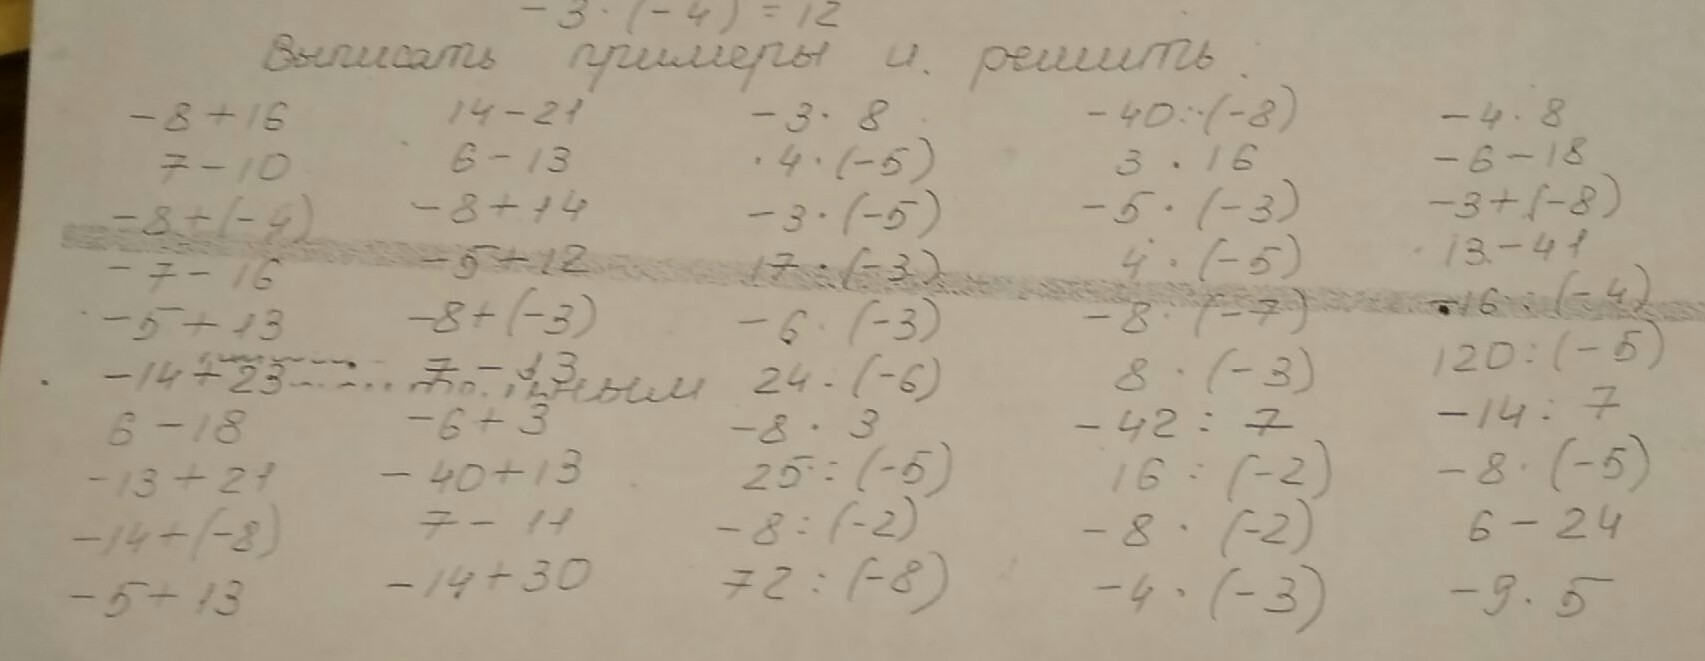 -3·(-4)=12
Выписать примеры и. решить.
-8+16 14-21 -3·8 -40:(-8) -4·8
7-10 6-13 ·4·(-5) 3·16 -6-18
-8+(-4) -8+14 -3·(-5) -5·(-3) -3+(-8)
-7-16 -5+12 17·(-3) 4·(-5) 13-41
-5+13 -8+(-3) -6·(-3) -8·(-7) -16·(-4)
-14+23 7-13 24:(-6) 8·(-3) 120:(-5)
6-18 -6+3 -8·3 -42:7 -14:7
-13+21 -40+13 25:(-5) 16:(-2) -8·(-5)
-14+(-8) 7-11 -8:(-2) -8·(-2) 6-24
-5+13 -14+30 72:(-8) -4·(-3) -9·5